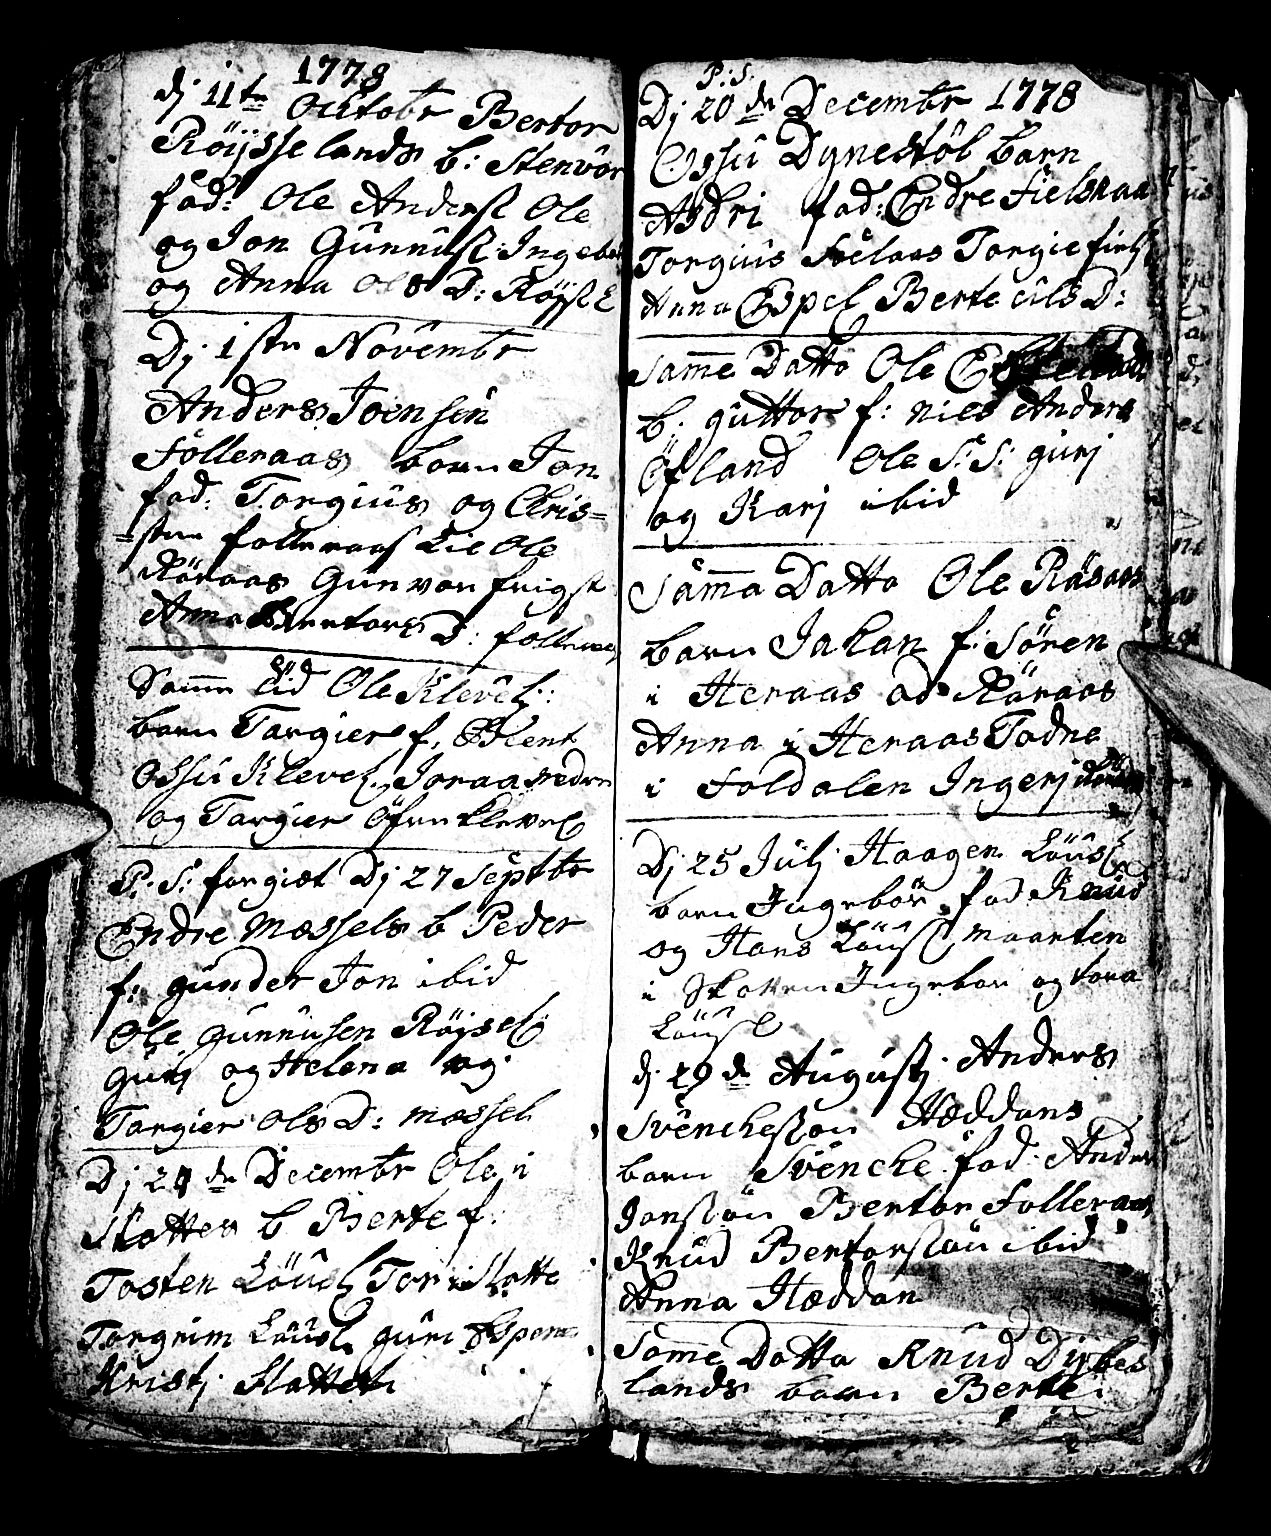 1778
Dj 11te Octobr Bertor
Röijsselands b: Stenvör
fad: Ole Anders: Ole
og Jon Gunnus: Ingebor
og Anna Ols D: Röjs
Dj 1ste Novembr
Anders Joensen
Folleraas barn Jon
fad: Torgius og Chris=
=sten folleraas Lie Ole
Röraas Gunvor frigst
Anna Bertors D: folleraas
Samme tid Ole Klevel:
barn Targier f,
Ossu Klevel, Joraa nedre
og Targier Öfre Klevel
P: S: forgiet Dj 27 Septbr
Endre Mæssels b Peder
f: gunder Jon ibid
Ole Gunnusen Röjsel:
guri og Helena og
Targier Ols D: mæssel
Dj 20de Decembr Ole i
Slotten b Berte f:
Tosten Löusl Tor i Slotte
Torgrim Löusl guri Aspen
Kristj Slotten
P: S:
Dj 20de Decembr 1778
Ossu Dynestöl barn
Asdri fad: Endre Fielskaa
Torgius Föelaas Torgie fiels
Anna Espel Berte Eils D:
Samme Datto Ole
b. guttor f: niels Anders
Öfland Ole S: S: gurj
og Karj ibid
Samma Datto Ole Räsaas
barn Jakan f: Sören
i Heraas ad Röraas
Anna i Heraas Todne
i Foldalen Ingerj
Dj 25 Julj Haagen Löusl
barn Ingebör fad Knud
og Hans Löusl maarten
i Slotten Ingebor og tora
Löusl
dj 29de Augustj Anders
Svenchesson Hæddans
barn Svenche fad: Anders
Jonsön Bertor Folleraas
Knud Bertorsön ibid
Anna Hæddan
Samme Datto Knud Dybes
lands barn Berte